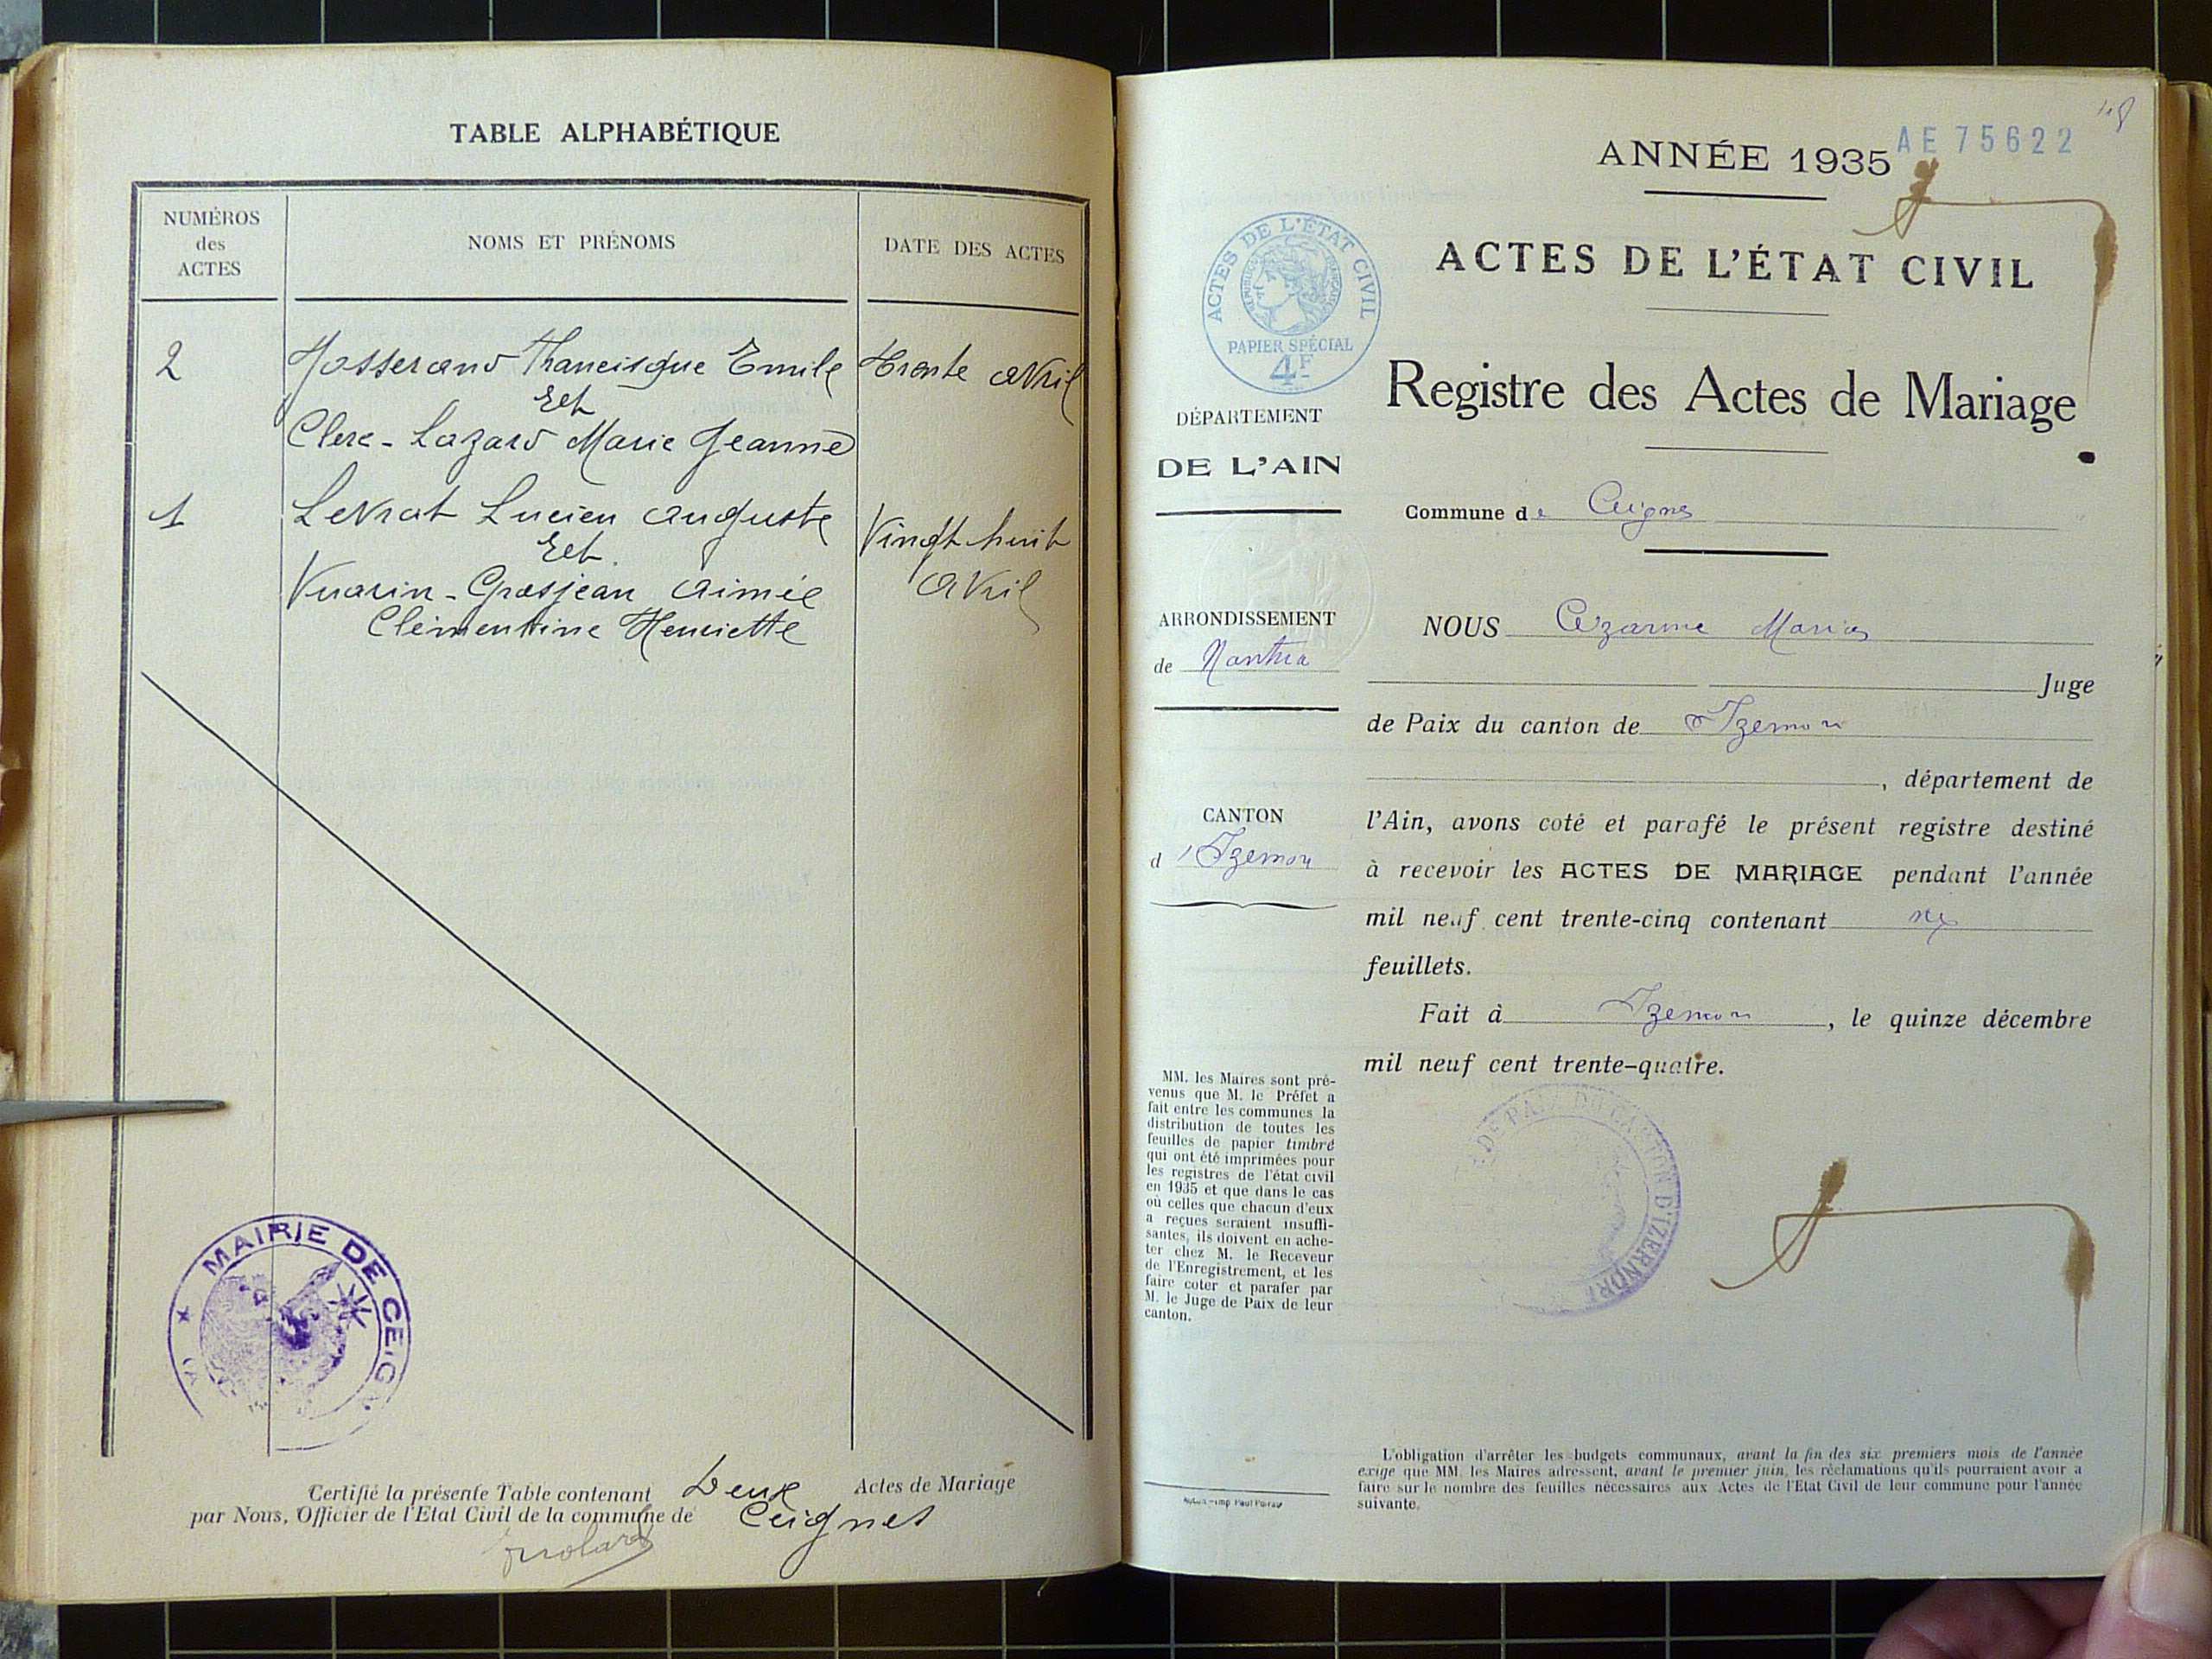 TABLE ALPHABÉTIQUE
NUMÉROS
des
ACTES
NOMS ET PRÉNOMS
DATE DES ACTES
2
Josserand Francisque Emile
Trente avril
Et
Clerc-Lazard Marie Jeanne
1
Levrat Lucien auguste
Vingt huit
avril
Et
Vuarin-Grosjean aimée
Clémentine Henriette
MAIRIE DE CEIG
Certifié la présente Table contenant Deux Actes de Mariage
par Nous, Officier de l'Etat Civil de la commune de Ceignes
48
AE 75622
ANNÉE 1935
ACTES DE L'ÉTAT CIVIL
RÉPUBLIQUE FRANÇAISE
PAPIER SPÉCIAL
4F
ACTES DE L'ÉTAT CIVIL
Registre des Actes de Mariage
DÉPARTEMENT
DE L'AIN
Commune de Ceignes
ARRONDISSEMENT
de Nantua
CANTON
d'Izernore
NOUS Marius
Juge
de Paix du canton de d'Izernore
, département de
l'Ain, avons coté et parafé le présent registre destiné
à recevoir les ACTES DE MARIAGE pendant l'année
mil neuf cent trente-cinq contenant six
feuillets.
Fait à Izernore, le quinze décembre
mil neuf cent trente-quatre.
DE PAIX DU CANTON D'IZERNORE
MM. les Maires sont pré-
venus que M. le Préfet a
fait entre les communes la
distribution de toutes les
feuilles de papier timbré
qui ont été imprimées pour
les registres de l'état civil
en 1935 et que dans le cas
où celles que chacun d'eux
a reçues seraient insuffi-
santes, ils doivent en ache-
ter chez M. le Receveur
de l'Enregistrement, et les
faire coter et parafer par
M. le Juge de Paix de leur
canton.
L'obligation d'arrêter les budgets communaux, avant la fin des six premiers mois de l'année
exige que MM. les Maires adressent, avant le premier juin, les réclamations qu'ils pourraient avoir a
faire sur le nombre des feuilles nécessaires aux Actes de l'Etat Civil de leur commune pour l'année
suivante.